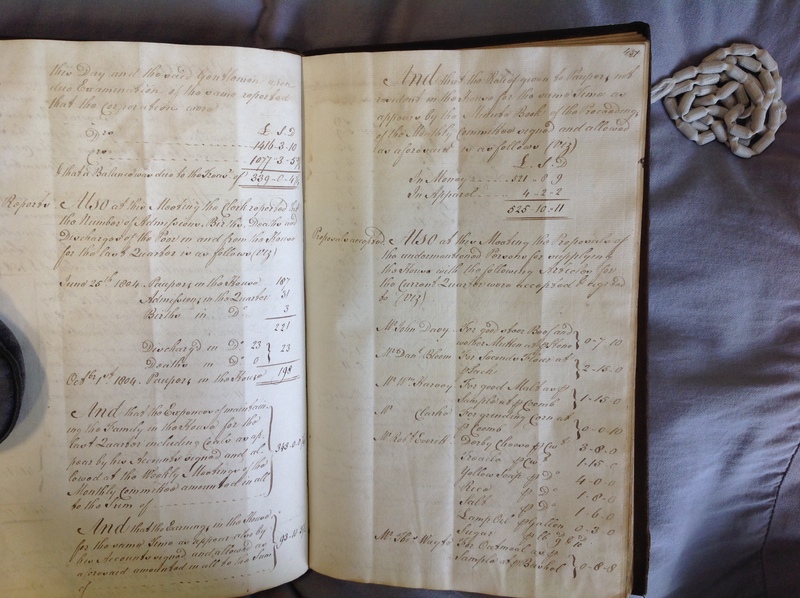 this Day and the said Gentlemen upon
due Examination of the same reported
that the Corporation were
Dr.
£ S. D
1416-3-10
1077-3-5
& that a Balance was due to the Treasr. of 339-0-4
Reports Also at this Meeting the Clerk reported that
the Number of Admissions, Births, Deaths and
Discharges of the Poor in and from the House
for the last Quarter is as follows (Viz)
June 25th 1804. Paupers in the House 187
Admissions in the Quarter 31
Births in Do. 3
221
Discharg'd in Do. 23 } 23
Deaths in Do. 0
Octr. 1st 1804. Paupers in the House 198
And that the Expences of maintain
ing the Family in the House for the
last Quarter including Coals as ap
pear by his Accounts signed and al
lowed at the Weekly Meetings of the
Monthly Committee amounted in all
to the Sum of
And that the Earnings in the House
for the same Time as appears also by
his Accounts signed and allowed as
aforesaid amounted in all to the Sum
of
And that the Relief given to Paupers not
resident in the House for the same Time as
appears by the Minute Book of the Proceedings
of the Monthly Committee signed and allowed
as aforesaid is as follows (Viz)
£ S. D
In Money 521 - 8 9
In Apparel 4-2-2
525 10-11
Proposals accepted Also at this Meeting the Proposals of
the undermentioned Persons for supplying
the House with the following Articles for
the Current Quarter were accepted & agreed
to (Viz)
Mr. John Davy For good Steer Beef and
wether Mutton at p Stone } 0-7-10
Mr. Danl. Bloom For Seconds Flour at
p Sack } 2-15-0
Mr. Wm. Harvey For good Malt as p
Sample at p Coomb } 1-15-0
Mr. Clarke For grinding Corn at
p Coomb } 0-0-10
Mr. Robt. Everett Derby Cheese p Cwt 3-8-0
Treacle p Cwt 1-15-0
Yellow Soap p Do 4-0-0
Rice p Do 1-8-0
Salt p Do 1-6-0
Lamp Oil p Gallon 0-3-0
Sugar p lb
Mr. Thos. Wayte For Oatmeal as p
Sample at p Bushel } 0-8-8